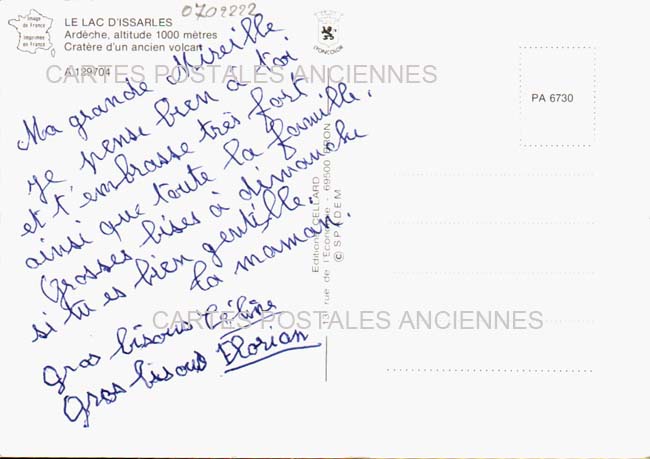 0709222
Image de France
Imprimée en France
LE LAC D'ISSARLES
Ardèche, altitude 1000 mètres
Cratère d'un ancien volcan
A 129704
LYONCOLOR
PA 6730
CARTES POSTALES ANCIENNES
Ma grande Mireille
Je pense bien à toi
et t'embrasse très fort
ainsi que toute la famille.
Grosses bises à dimanche
si tu es bien gentille.
ta maman.
Gros bisous Céline
Gros bisous Florian
Editions CELLARD
rue de l'Economie - 69500 BRON
© SPADEM
CARTES POSTALES ANCIENNES